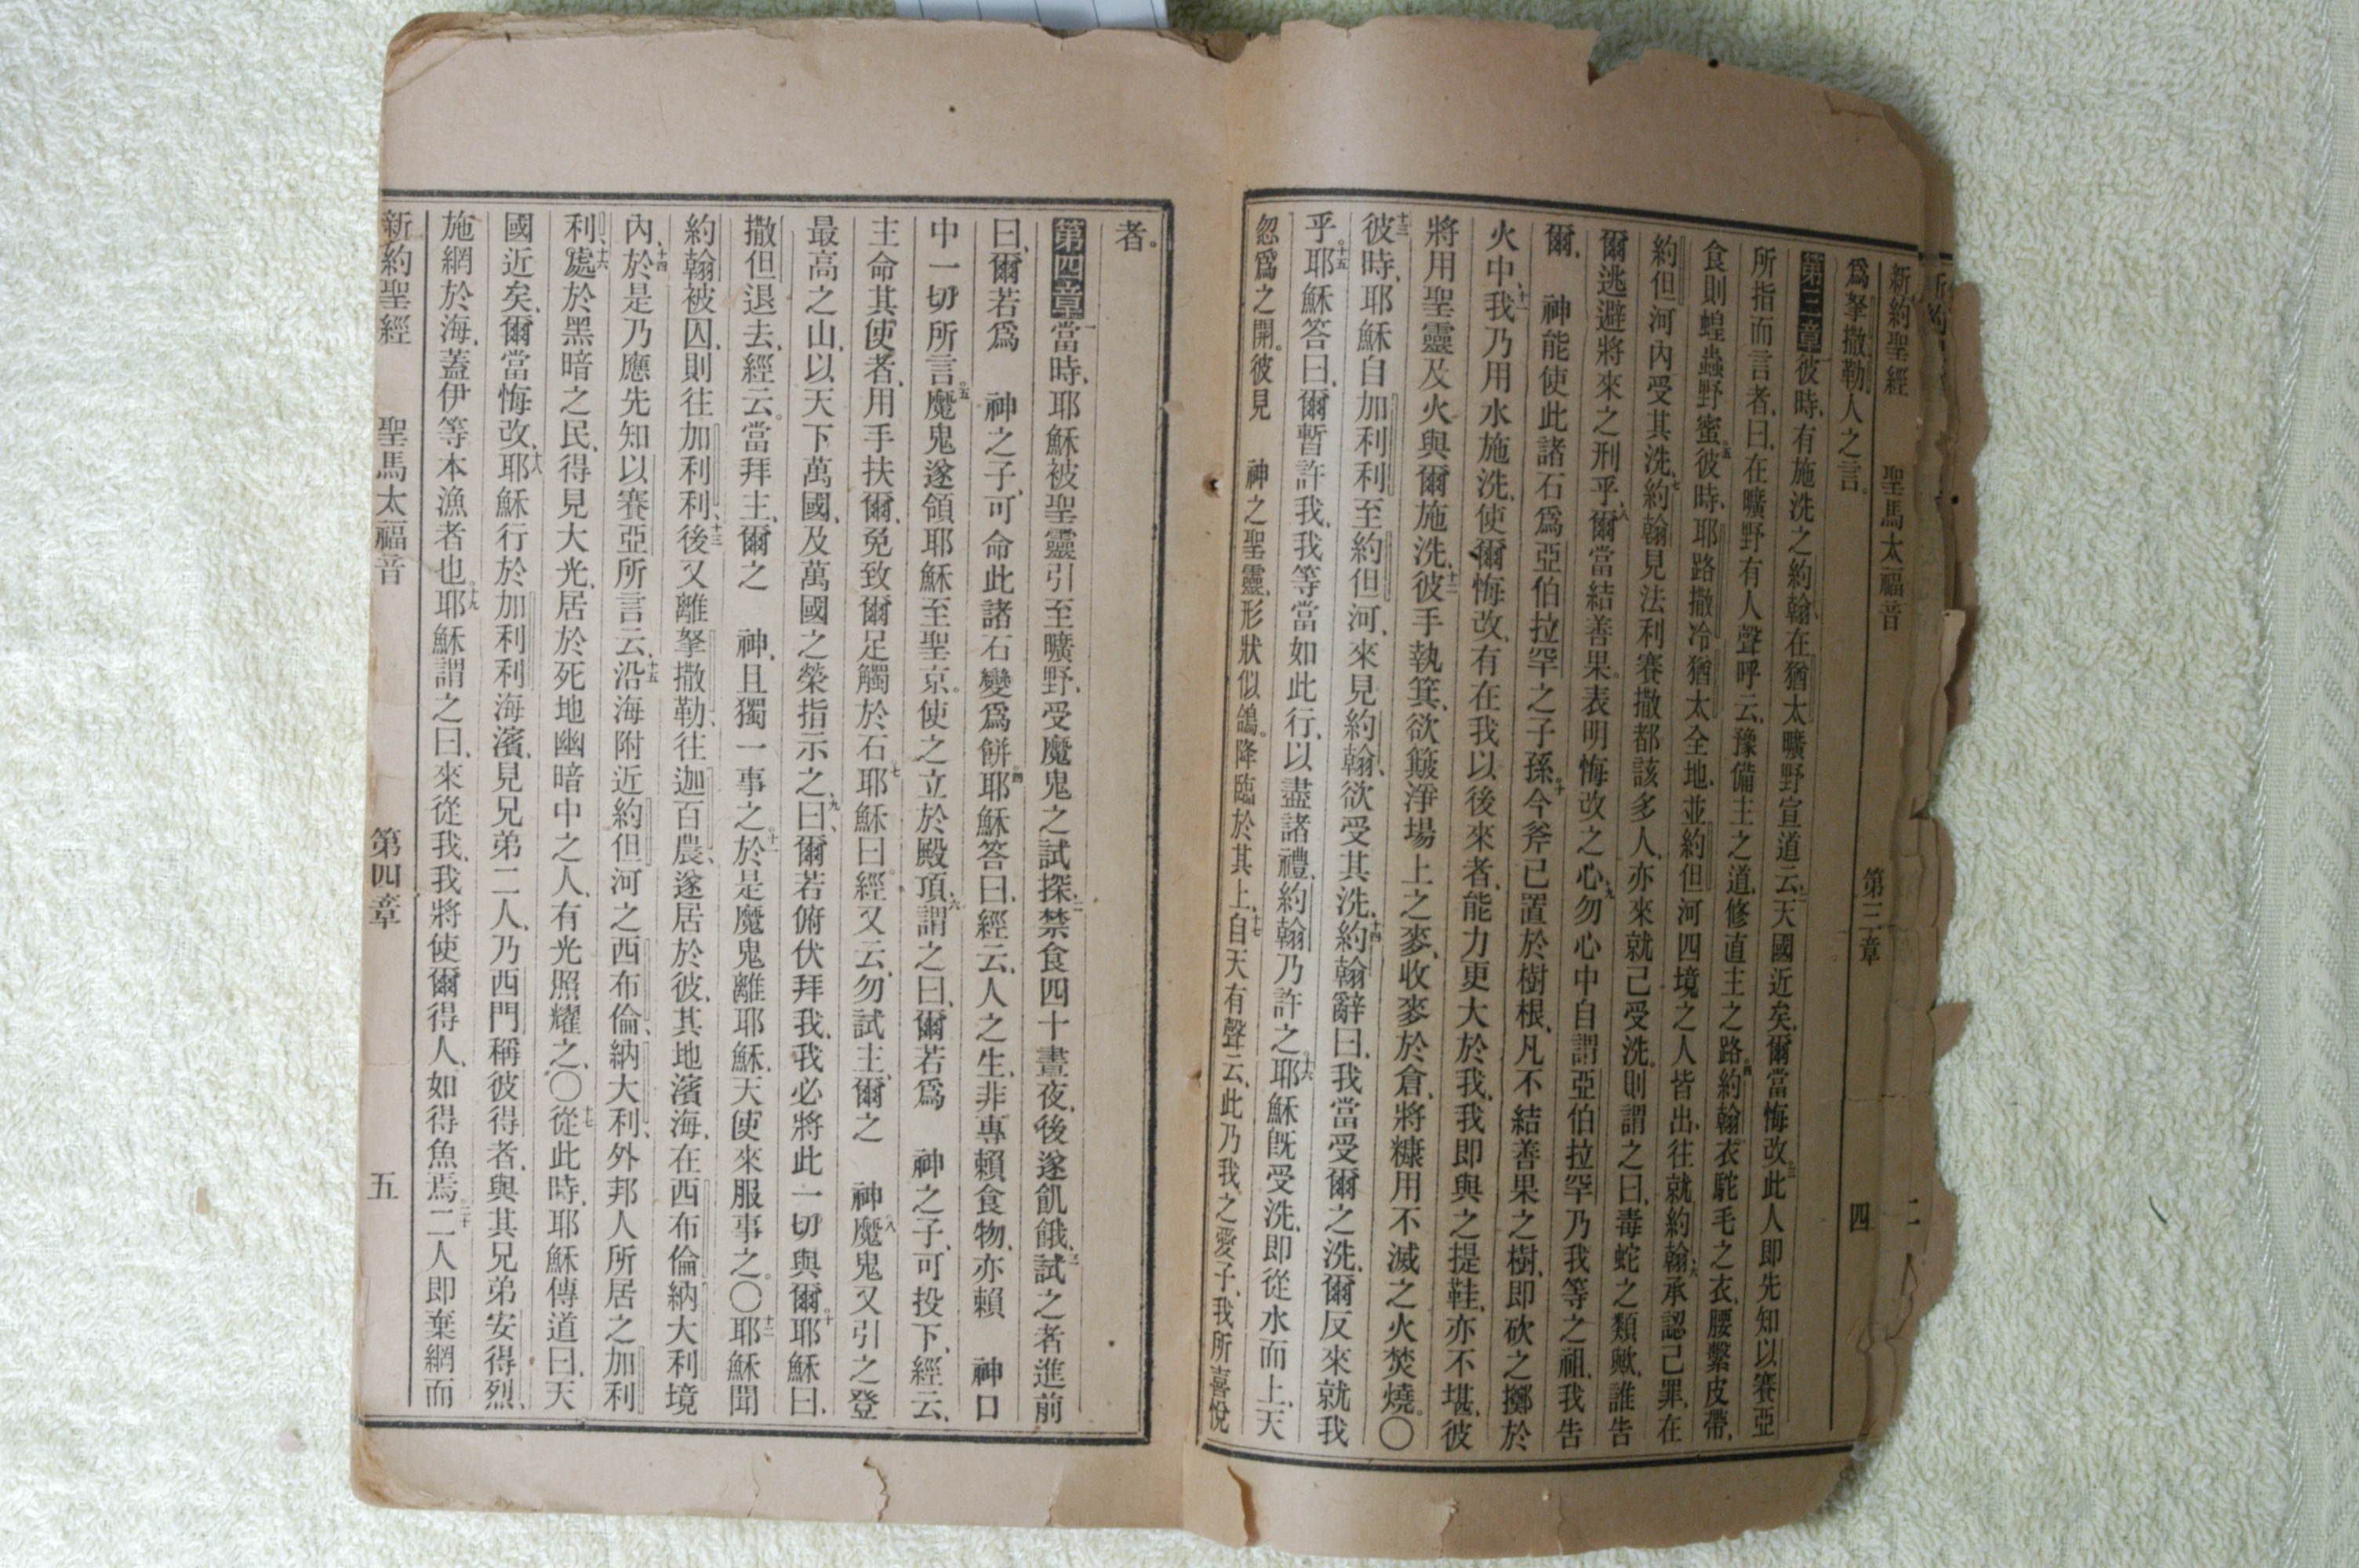 新約聖經 聖馬太福音 第三章 四
爲拏撒勒人之言。
第三章彼時、有施洗之約翰、在猶太曠野宣道云、二天國近矣、爾當悔改、三此人即先知以賽亞
所指而言者、曰、在曠野有人聲呼云、豫備主之道、修直主之路。四約翰衣駝毛之衣、腰繫皮帶、
食則蝗蟲野蜜。五彼時、耶路撒冷猶太全地、並約但河四境之人皆出、往就約翰、六承認己罪、在
約但河內受其洗、七約翰見法利賽撒都該多人、亦來就己受洗。則謂之曰、毒蛇之類歟、誰告
爾逃避將來之刑乎、八爾當結善果。表明悔改之心、九勿心中自謂亞伯拉罕乃我等之祖、我告
爾、 神能使此諸石爲亞伯拉罕之子孫。十今斧已置於樹根、凡不結善果之樹、即砍之擲於
火中、十一我乃用水施洗、使爾悔改、有在我以後來者、能力更大於我、我即與之提鞋、亦不堪、彼
將用聖靈及火與爾施洗、十二彼手執箕、欲簸淨場上之麥、收麥於倉、將糠用不滅之火焚燒。〇
十三彼時、耶穌自加利利至約但河、來見約翰、欲受其洗、十四約翰辭曰、我當受爾之洗、爾反來就我
乎、十五耶穌答曰、爾暫許我、我等當如此行、以盡諸禮、約翰乃許之。十六耶穌旣受洗、即從水而上、天
忽爲之開。彼見 神之聖靈、形狀似鴿。降臨於其上、十七自天有聲云、此乃我之愛子、我所喜悅
者。
第四章一當時、耶穌被聖靈引至曠野、受魔鬼之試探、二禁食四十晝夜、後遂飢餓、三試之者進前
曰、爾若爲 神之子、可命此諸石變爲餅。四耶穌答曰、經云、人之生、非專賴食物、亦賴 神口
中一切所言。五魔鬼遂領耶穌至聖京。使之立於殿頂、六謂之曰、爾若爲 神之子、可投下、經云、
主命其使者、用手扶爾、免致爾足觸於石、七耶穌曰、經又云、勿試主、爾之 神。八魔鬼又引之登
最高之山、以天下萬國、及萬國之榮指示之、九曰、爾若俯伏拜我、我必將此一切與爾。十耶穌曰、
撒但退去、經云。當拜主、爾之 神、且獨一事之。十一於是魔鬼離耶穌、天使來服事之。〇十二耶穌聞
約翰被囚、則往加利利、十三後又離拏撒勒、往迦百農、遂居於彼、其地濱海、在西布倫納大利境
內、十四於是乃應先知以賽亞所言云、十五沿海附近約但河之西布倫、納大利、外邦人所居之加利
利、十六處於黑暗之民、得見大光、居於死地幽暗中之人、有光照耀之、〇十七從此時、耶穌傳道曰、天
國近矣、爾當悔改、十八耶穌行於加利利海濱、見兄弟二人、乃西門稱彼得者、與其兄弟安得烈、
施網於海、蓋伊等本漁者也。十九耶穌謂之曰、來從我、我將使爾得人、如得魚焉。二十二人即棄網而
新約聖經 聖馬太福音 第四章 五